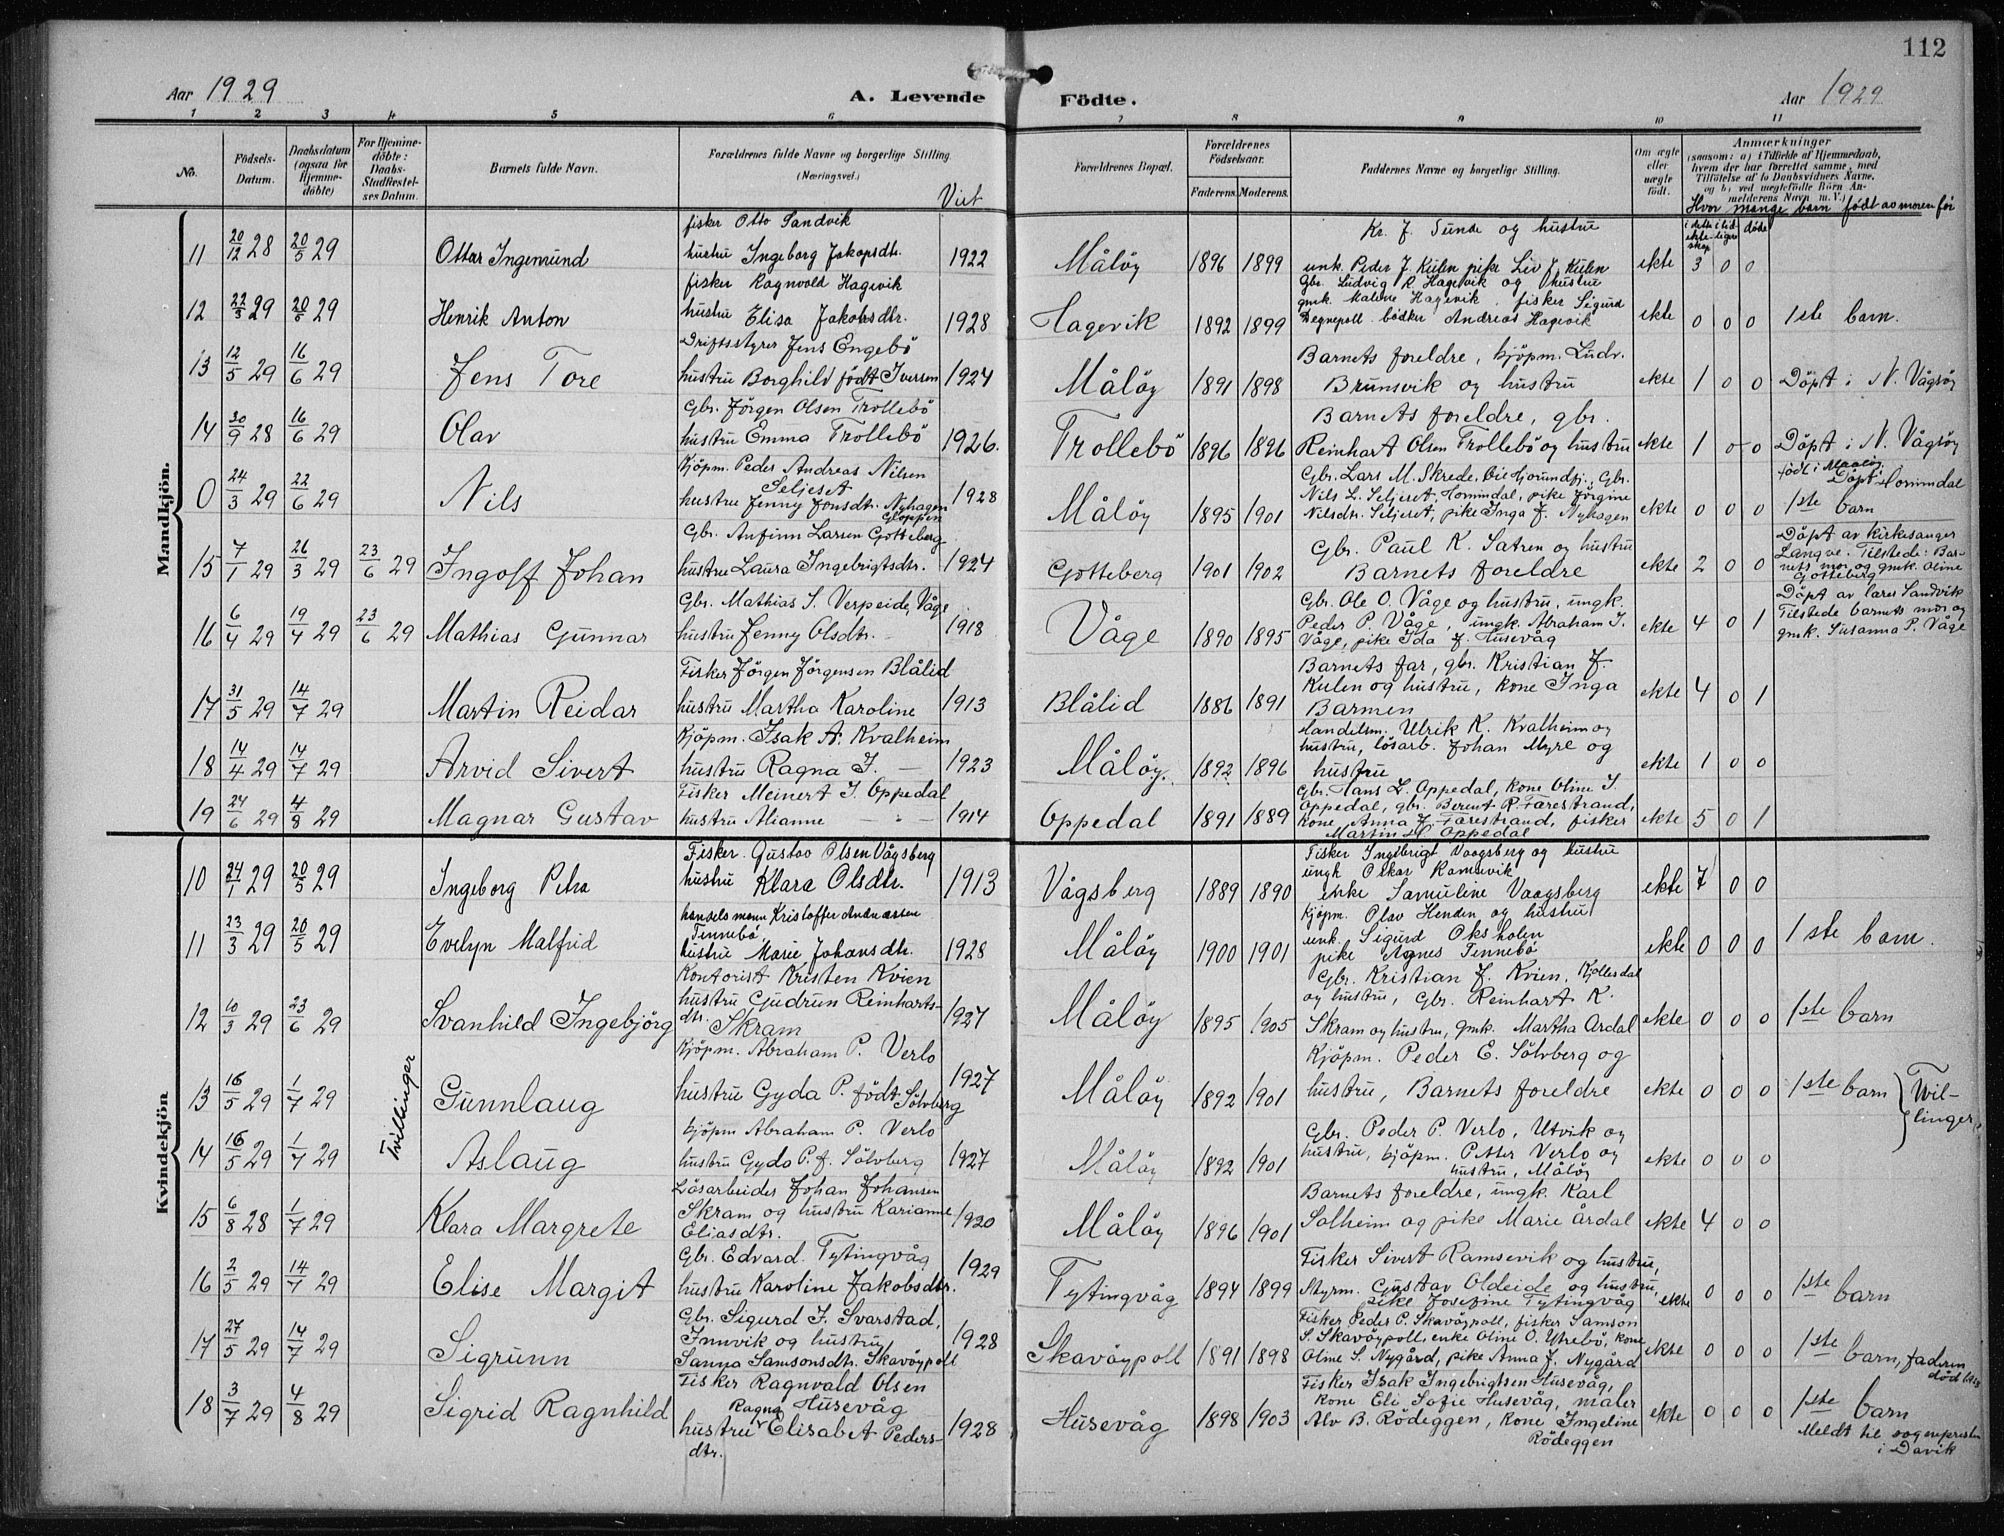 112
Aar 1929 A. Levende Födte. Aar 1929
1 2 3 4 5 6 7 8 9 10 11
No. Födsels-Datum. Daabsdatum (ogsaa for Hjemmedöbte) For Hjemmedöbte: Daabs-Stadfæstelses Datum. Barnets fulde Navn. Forældrenes fulde Navne og borgerlige Stilling. (Næringsvei.) Viet Forældrenes Bopæl. Forældrenes Födselsaar. Faderens. Moderens. Faddernes Navne og borgerlige Stilling. Om ægte eller uægte födt. Anmærkninger
(saasom: a) i Tilfælde af Hjemmedaab, hvem der har forrettet samme, med Tilföielse af to Daabsvidners Navne, og b) ved uægtefödte Börn Anmelderens Navn m. V.)
Hvor mange barn født av moren før
i dette ekteskap i tidligere døde
Mandkjön.
11 20/12 28 20/5 29 Ottar Ingemund fisker Otto Sandvik hustru Ingeborg Jakopsdtr. 1922 Måløy 1896 1899 Kr. J. Sunde og hustru unk. Peder J. Kulen pike Liv J. Kulen ekte 3 0 0
12 22/3 29 20/5 29 Henrik Anton fisker Ragnvold Hagevik hustru Elisa Jakobsdtr. 1928 Hagevik 1892 1899 Gbr. Ludvig R Hagevik og hustru gmk. Malene Hagevik. fisker Sigurd Degnepoll. bødker Andreas Hagevik ekte 0 0 0 1ste barn.
13 12/5 29 16/6 29 Jens Tore Driftsstyrer Jens Engebö hustru Borghild födt Iversen 1924 Måløy 1891 1898 Barnets foreldre, kjöpm. Ludv. Brunsvik og hustru ekte 1 0 0 Döpt i N. Vågsöy
14 30/9 28 16/6 29 Olav Gbr. Jörgen Olsen Trollebö hustru Emma Trollebö 1926. Trollebö 1896 1896 Barnets foreldre, gbr. Reinhart Olsen Trollebö og hustru ekte 1 0 0 Döpt i N. Vågsöy
0 24/3 29 22/6 29 Nils Kjöpm. Peder Andreas Nilsen Seljeset hustru Jenny Jonsdtr. Nyhagen Gloppen 1928 Måløy 1895 1901 Gbr. Lars M. Skrede, Hjörundfj., Gbr. Nils L. Seljeset, Hornindal, pike Jörgine Nilsdtr. Seljeset, pike Inga J. Nyhagen ekte 0 0 0 född i Maaløy. Döpt i Hornindal 1ste barn
15 7/1 29 26/3 29 23/6 29 Ingolf Johan Gbr. Anfinn Larsen Gotteberg hustru Laura Ingebrigtsdtr. 1924 Gotteberg 1901 1902 Gbr. Paul K. Satren og hustru Barnets foreldre ekte 2 0 0 Döpt av kirkesanger Langve. Tilstede: Barnets mor og gmk. Oline Gotteberg
16 6/4 29 19/4 29 23/6 29 Mathias Gunnar Gbr. Mathias S. Verpeide, Våge hustru Jenny Olsdtr. 1918 Våge 1890 1895 Gbr. Ole O. Våge og hustru, ungk. Peder P. Våge, ungk. Abraham I. Våge, pike Ida J. Husevåg ekte 4 0 1 Döpt av lærer Sandvik Tilstede barnets mor og gmk. Susanna P. Våge
17 31/5 29 14/7 29 Martin Reidar Fisker Jörgen Jörgensen Blålid hustru Martha Karoline 1913 Blålid 1886 1891 Barnets far, gbr. Kristian J. Kulen og hustru, kone Inga Barmen ekte 4 0 1
18 14/4 29 14/7 29 Arvid Sivert Kjöpm. Isak A. Kvalheim hustru Ragna I. — 1923 Måløy. 1892 1896 Handelsm. Ulrik K. Kvalheim og hustru, lösarb. Johan Myre og hustru ekte 1 0 0
19 24/6 29 4/8 29 Magnar Gustav Fisker Meinert I. Oppedal hustru Alianne — " — 1914 Oppedal 1891 1889 Gbr. Hans L. Oppedal, kone Oline I. Oppedal, gbr. Berent R. Færestrand, kone Anna J. Færestrand, fisker Martin Oppedal ekte 5 0 1
Kvindekjön
10 24/1 29 20/5 29 Ingeborg Petra Fisker Gustav Olsen Vågsberg hustru Klara Olsdtr. 1913 Vågsberg 1889 1890 Fisker Ingebrigt Vaagsberg og hustru ungk Oskar Ramsevik enke Samuline Vaagsberg ekte 7 0 0
11 23/3 29 20/5 29 Evelyn Malfrid hanselsmann Kristoffer Andreassen Tennebö hustru Marie Johansdtr. 1928 Måløy 1900 1901 Kjöpm. Olav Henden og hustru unk. Sigurd Oksholen pike Agnes Tennebö ekte 0 0 0 1ste barn.
12 10/3 29 23/6 29 Svanhild Ingebjörg Kontorist Kristen Kvien hustru Gudrun Reinhartsdtr. Skram 1927 Måløy 1895 1905 Gbr. Kristian J. Kvien, Kjölsdal og hustru, Gbr. Reinhart K. Skram og hustru, gmk. Martha Årdal ekte 0 0 0 1ste barn
13 16/5 29 1/7 29 Tvillinger Gunnlaug Kjöpm. Abraham P. Verlo hustru Gyda P. födt Sölvberg 1927 Måløy 1892 1901 Kjöpm. Peder E. Sölvberg og hustru, Barnets foreldre ekte 0 0 0 1ste barn } Tvillinger.
14 16/5 29 1/7 29 Aslaug kjöpm Abraham P. Verlo hustru Gyda P. f. Sölvberg 1927 Måløy 1892 1901 Gbr. Peder P. Verlo, Utvik og hustru, kjöpm. Petter Verlo og hustru, Måløy ekte 0 0 0
15 6/8 28 1/7 29 Klara Margrete Lösarbeider Johan Johansen Skram og hustru Karianne Eliasdtr. 1920 Måløy 1896 1901 Barnets foreldre, ungk. Karl Solheim og pike Marie Årdal ekte 4 0 0
16 2/5 29 14/7 29 Elise Margit Gbr. Edvard Tytingvåg hustru Karoline Jakobsdtr. 1929 Tytingvåg 1894 1899 Fisker Sivert Ramsevik og hustru, Styrm. Gustav Oldeide og hustru, pike Josefine Tytingvåg ekte 0 0 0 1ste barn
17 27/5 29 14/7 29 Sigrunn Gbr. Sigurd I. Svarstad, Innvik og hustru Sanna Samsonsdtr. Skavöypoll 1928 Skavöypoll 1891 1898 Fisker Peder P. Skavöypoll, fisker Samson S. Skavöypoll, enke Oline O. Ytrebö, kone Oline S. Nygård, pike Anna J. Nygård ekte 0 0 0 1ste barn, faderen död
18 3/7 29 4/8 29 Sigrid Ragnhild Fisker Ragnvald Olsen Husevåg hustru Ragna Elisabet Pedersdtr. 1928 Husevåg 1898 1903 Fisker Isak Ingebrigtsen Husevåg, kone Eli Sofie Husevåg, maler Alv B. Rödeggen, kone Ingeline Rödeggen ekte 0 0 0 1ste barn Meldt til sognepresten i Davik